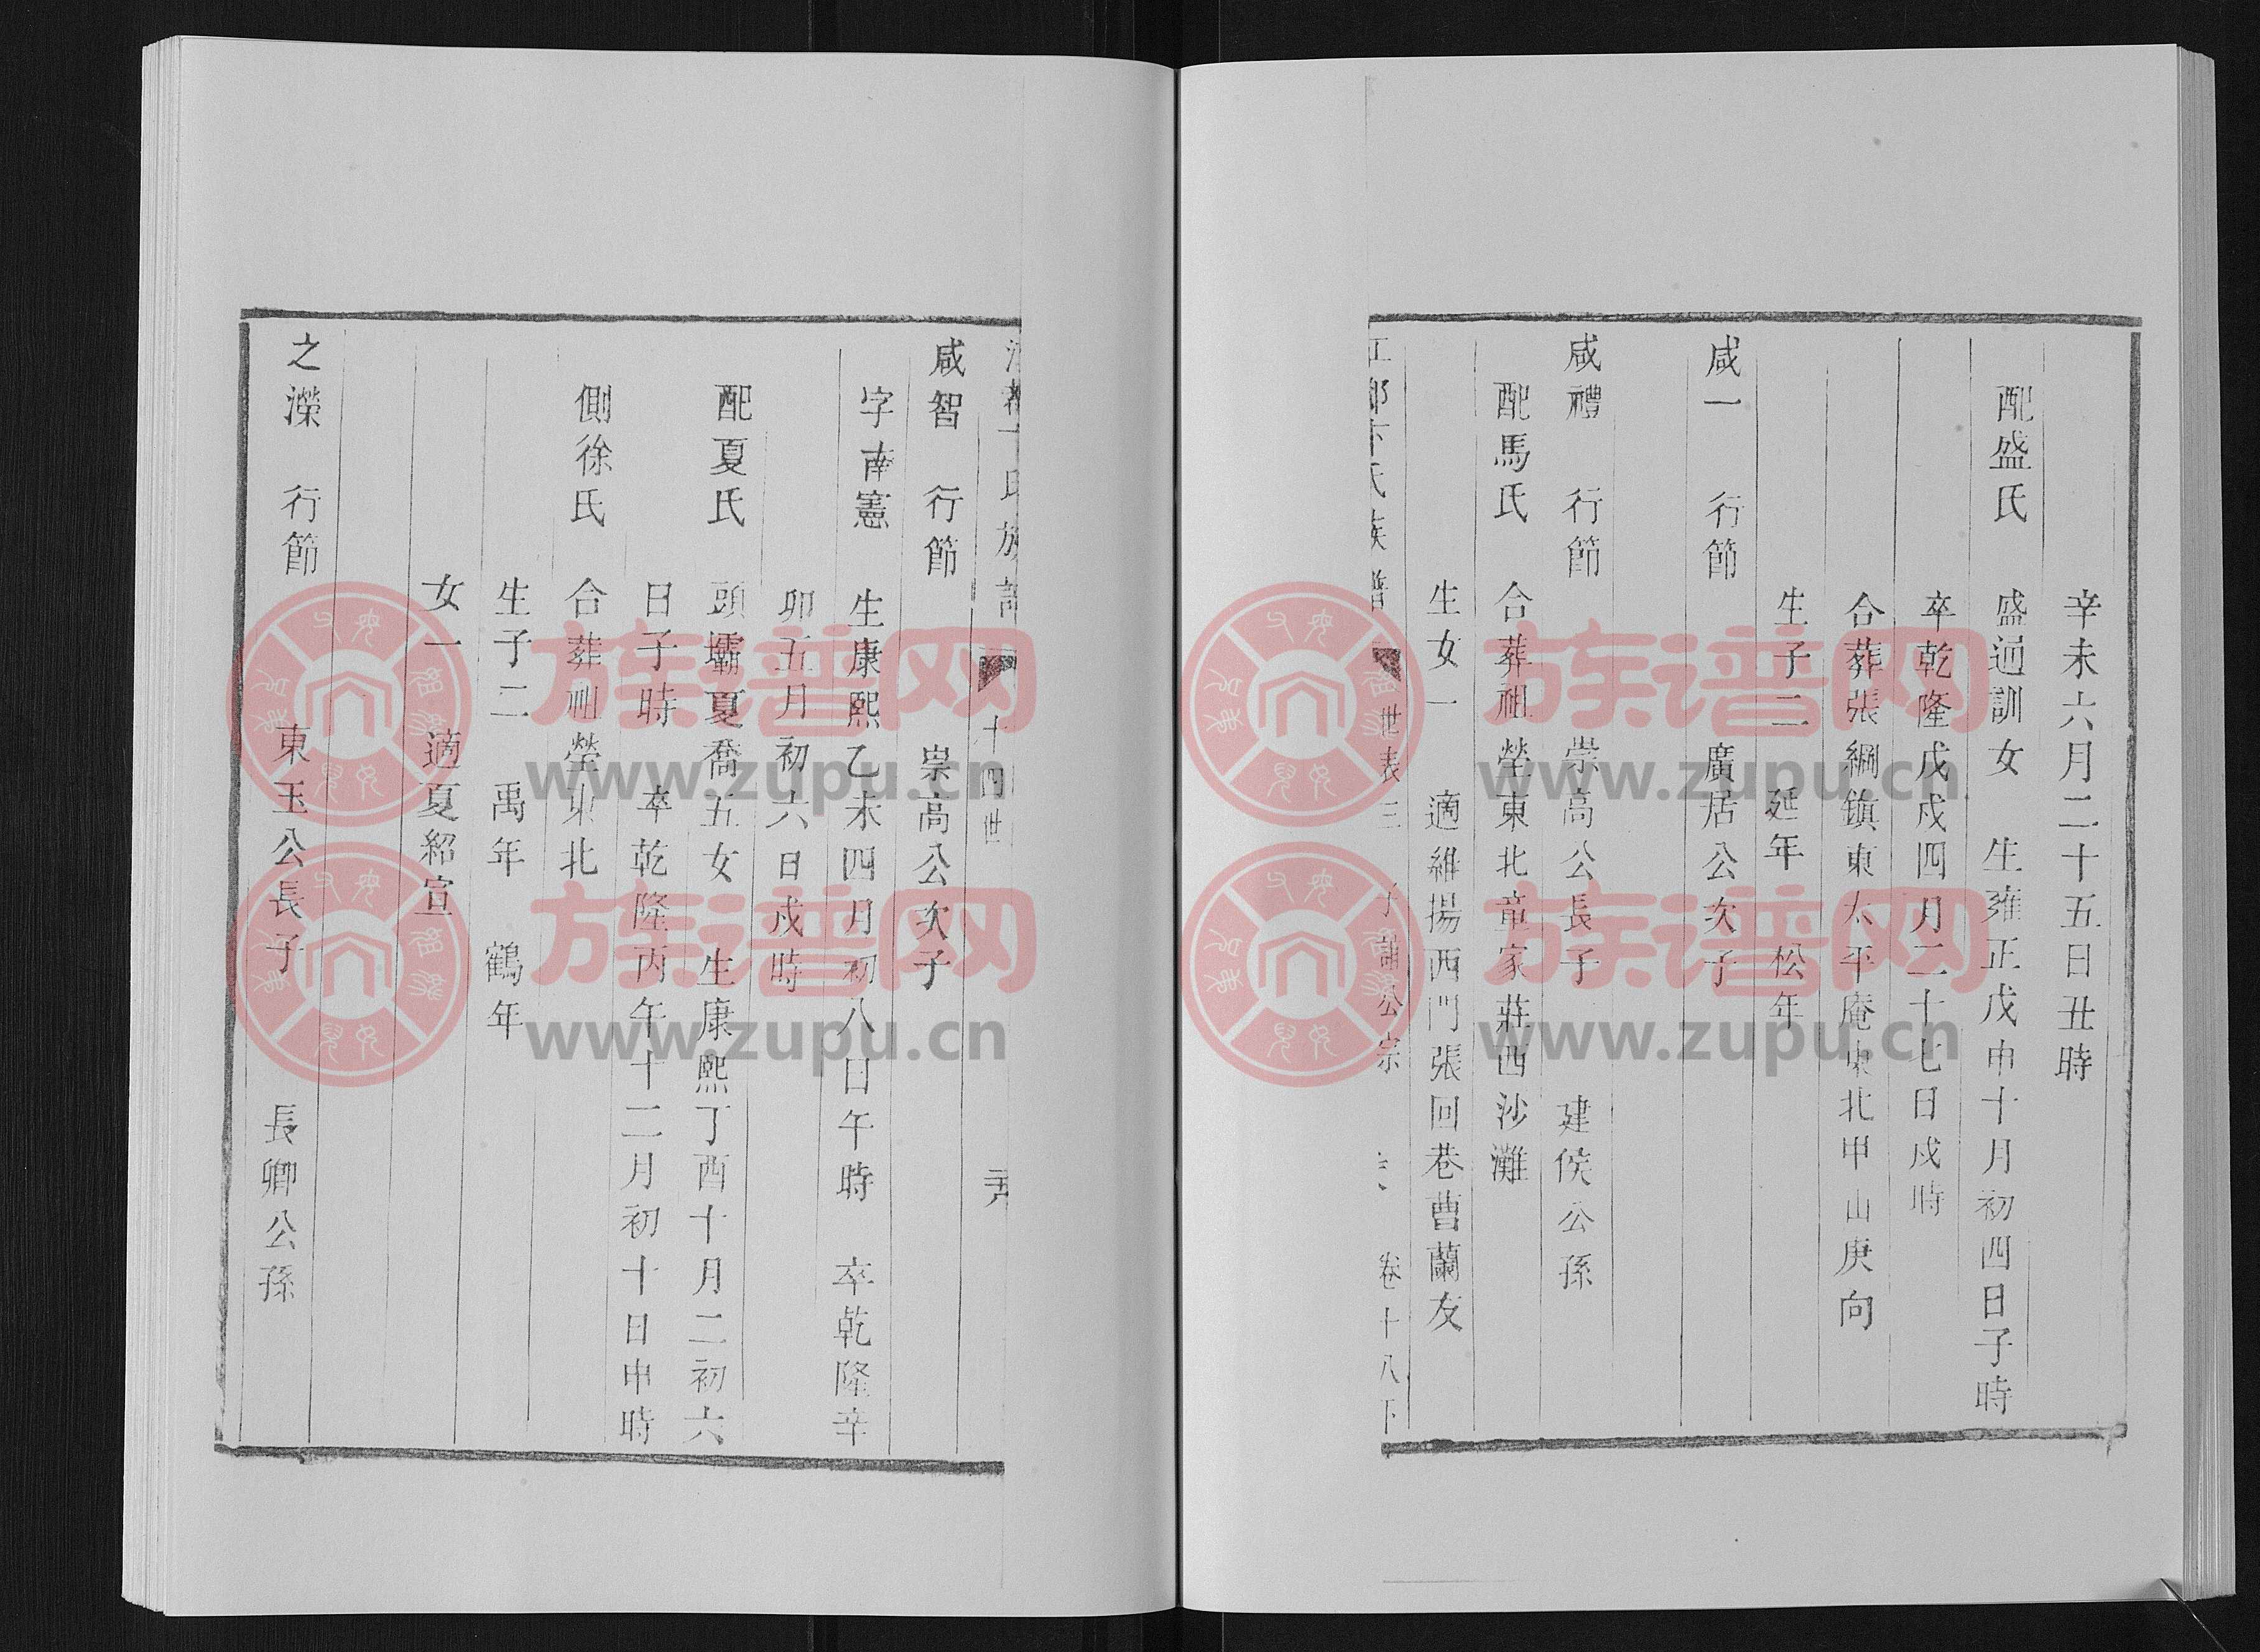 辛未六月二十五日丑時
配盛氏 盛迥訓女 生雍正戊申十月初四日子時
卒乾隆戊戌四月二十七日戌時
合葬張綱鎮東太平庵東北甲山庚向
生子二 延年 松年
咸一 行節 廣居公次子
咸禮 行節 崇高公長子 建侯公孫
配馬氏 合葬祖塋東北童家莊西沙灘
生女一 適維揚西門張回巷曹蘭友
江都卞氏族譜 世表三 子謝公宗 卷十八下
氏族譜 十四世
咸智 行節 崇高公次子
字南憲 生康熙乙未四月初八日午時 卒乾隆辛
卯五月初六日戌時
配夏氏 頭壩夏喬五女 生康熙丁酉十月二初六
日子時 卒乾隆丙午十二月初十日申時
側徐氏 合葬祖塋東北
生子二 禹年 鶴年
女一 適夏紹宣
之濚 行節 東玉公長子 長卿公孫
族谱网
www.zupu.cn
族谱网
www.zupu.cn
族谱网
www.zupu.cn
族谱网
www.zupu.cn